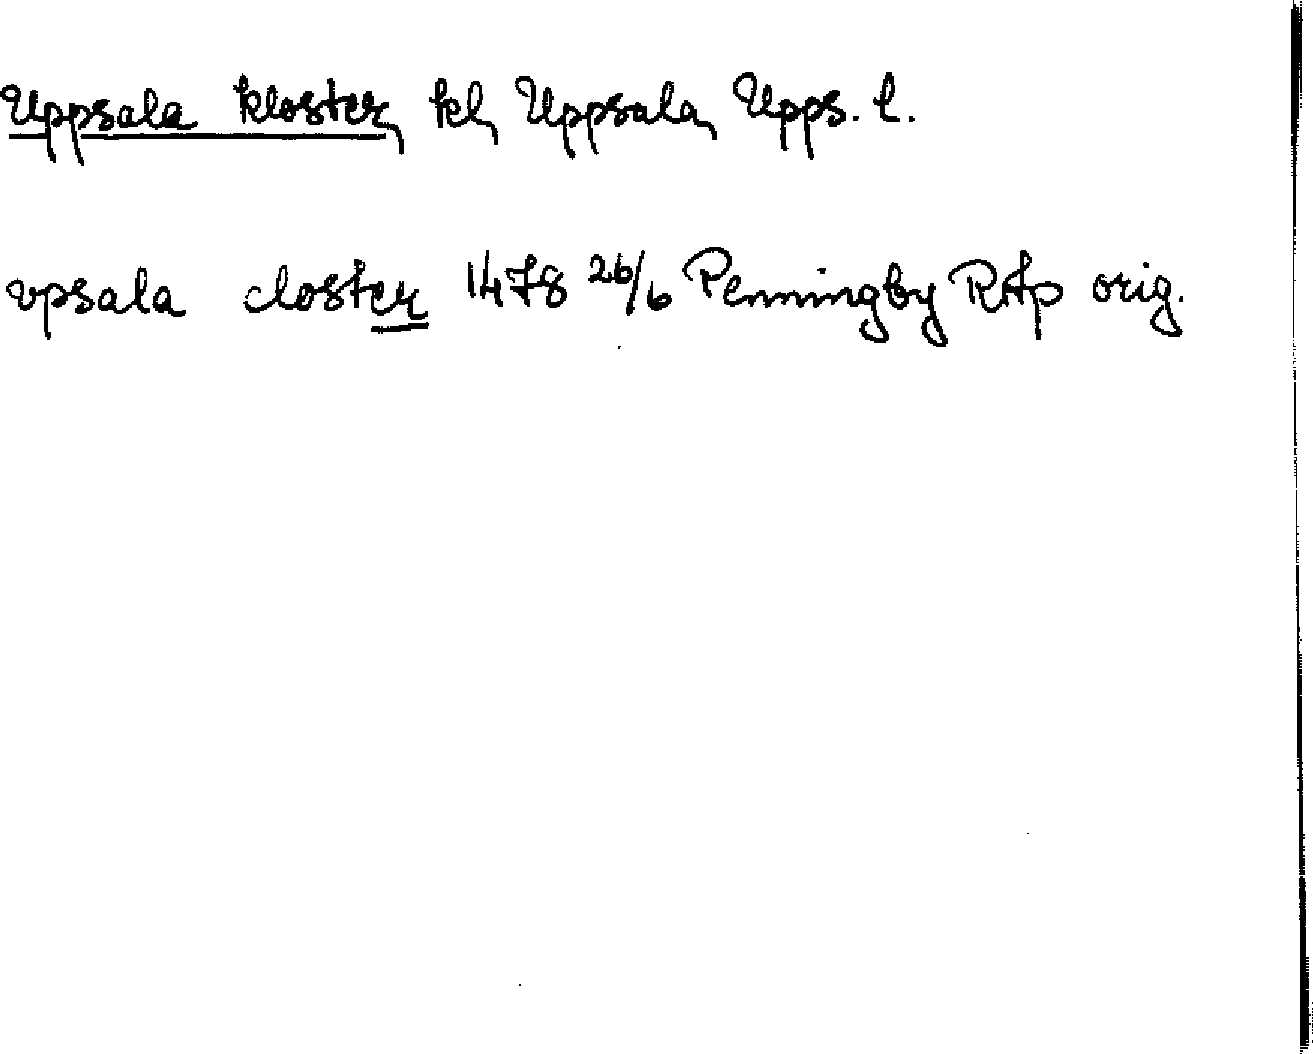 Uppsala kloster, kl, Uppsala, Upps. l.
vpsala closter 1478 26/6 Penningby RAp orig.